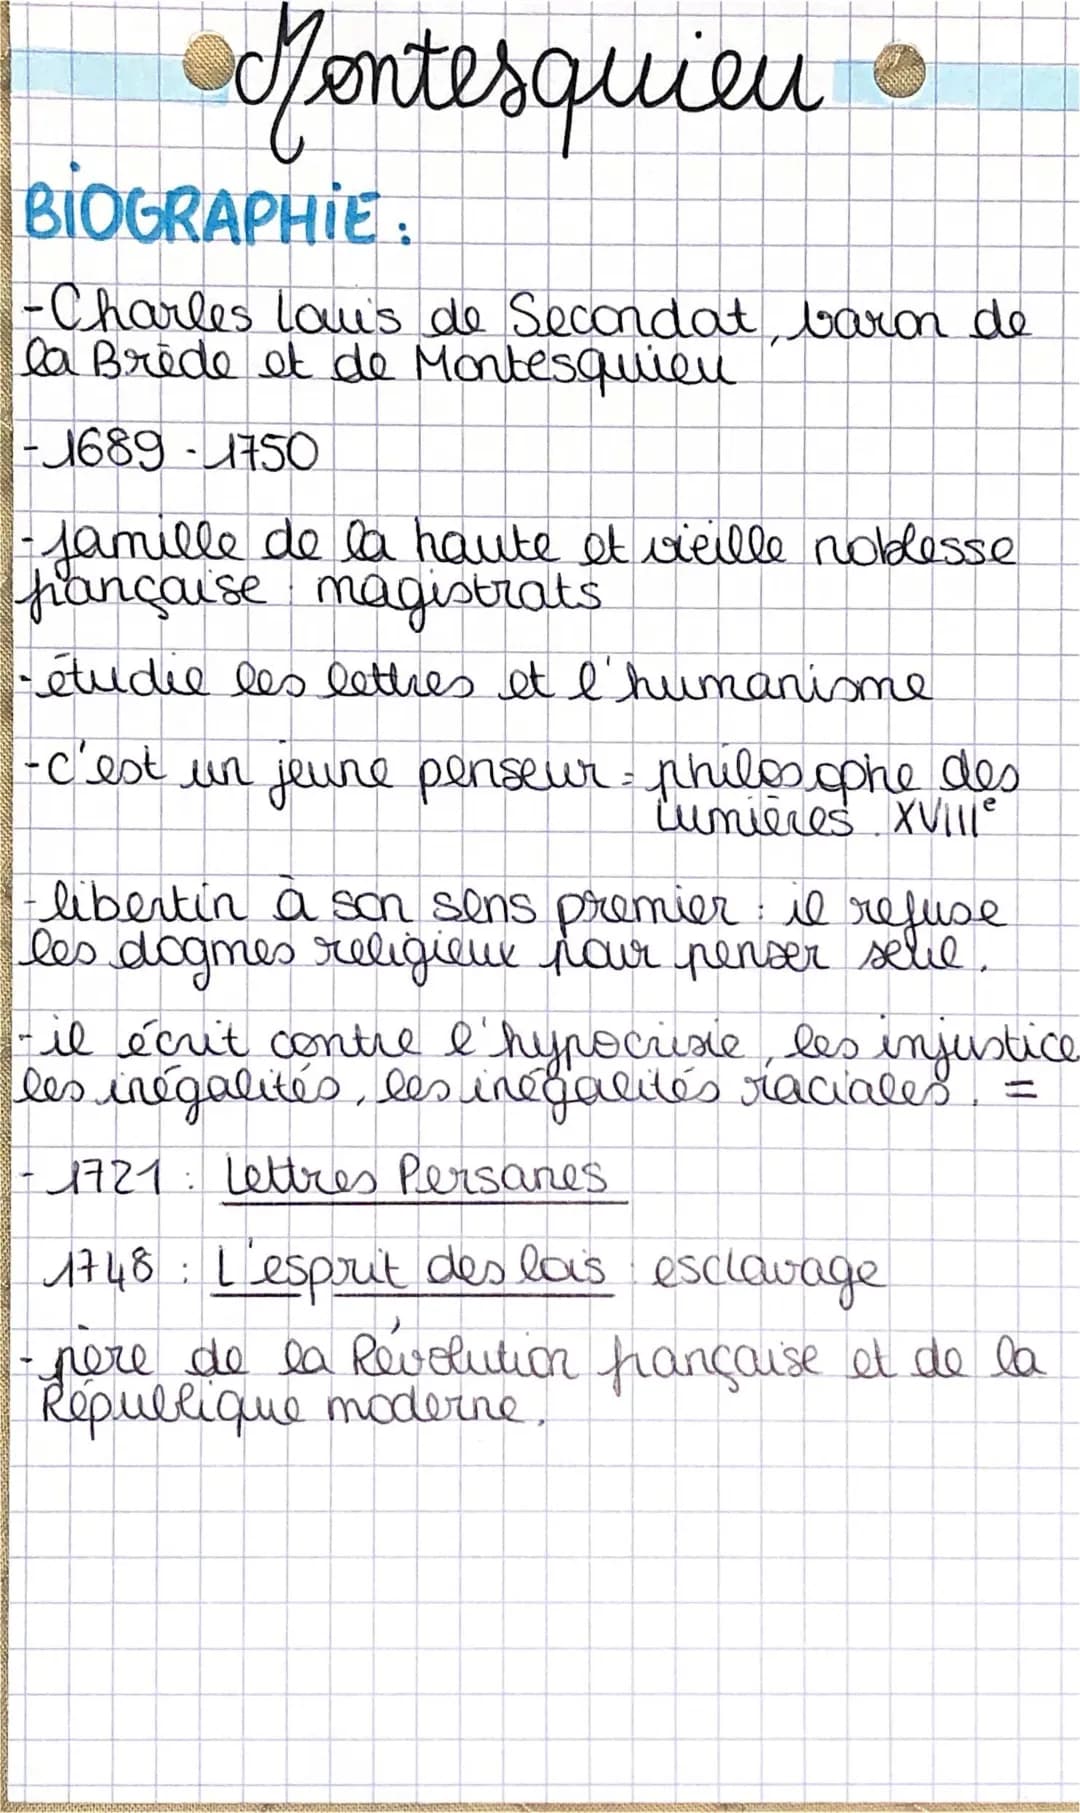 Montesquieu
BIOGRAPHIE :
-Charles Louis de Secondat, baron de
la Brède et de Montesquieu
- 1689 - 1750
- famille de la haute et vieille noblesse
française : magistrats
- étudie les lettres et l'humanisme
- c'est un jeune penseur = philosophe des
Lumières . XVIIIe
- libertin à son sens premier : il refuse
les dogmes religieux pour penser seul.
- il écrit contre l'hypocrisie, les injustice
les inégalités, les inégalités raciales. =
- 1721 : Lettres Persanes
1748 : L'esprit des lois : esclavage
- père de la Révolution française et de la
République moderne.